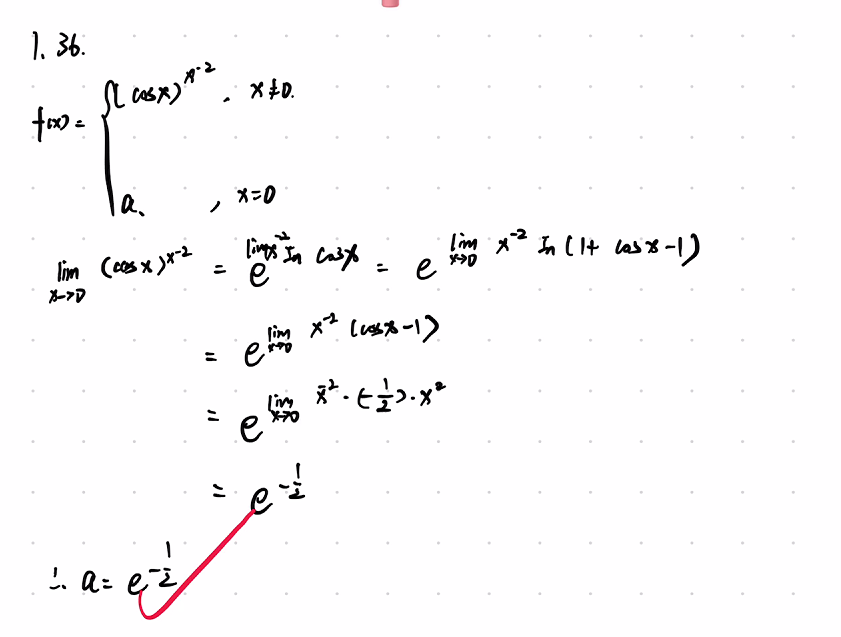 1. 36.
f(x) = { (cosx)^{x^{-2}}, x≠0.
a, , x=0
lim_{x→0} (cosx)^{x^{-2}} = e^{lim x^{-2} ln cosx} = e^{lim_{x→0} x^{-2} ln(1+cosx-1)}
= e^{lim_{x→0} x^{-2} (cosx-1)}
= e^{lim_{x→0} x^{-2}·(-\frac{1}{2})·x^2}
= e^{-\frac{1}{2}}
∴ a = e^{-\frac{1}{2}}